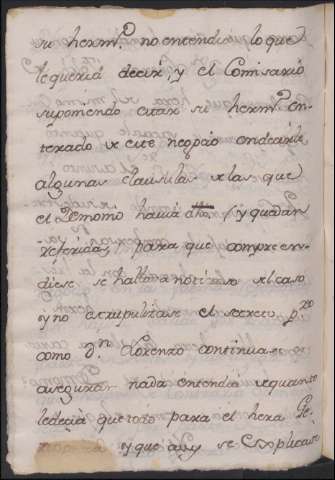 su herm.º no entendia lo que
le queria decir, y el Comisario
suponiendo estar su herm.º en-
terado de este negocio en decirle
algunas clausulas de las que
el Demonio havia dho. (y quedan
referidas) para que compreen-
diese se hallava noticioso del caso
y no escrupulizase el secreto p.ro
como D.n Lorenzo continuase
asegurar nada entendia de quanto
le decia que todo para el hera Ge-
y que asi se explicase